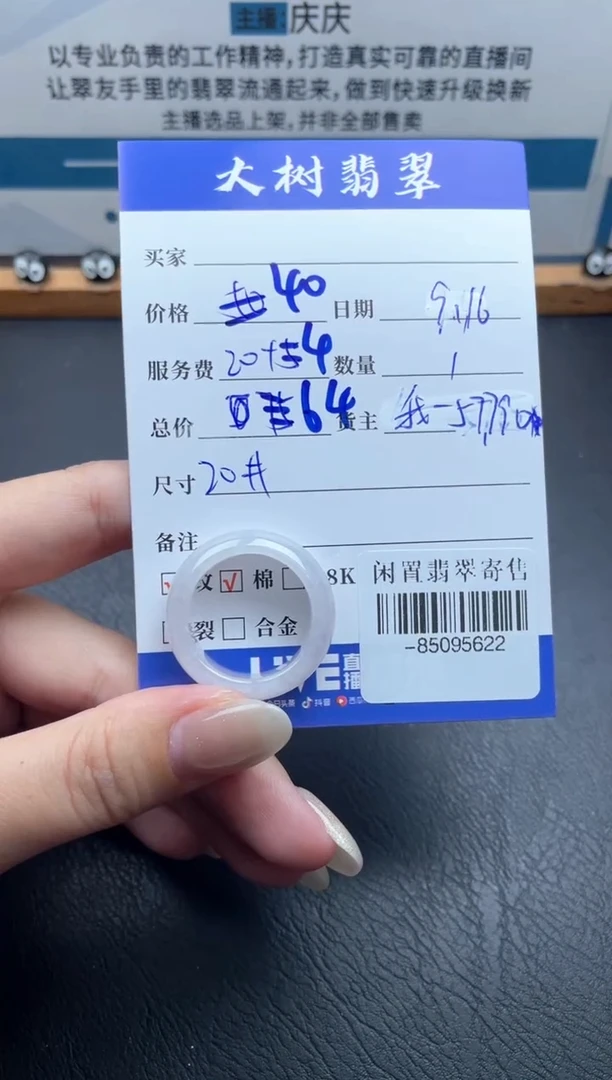 主播:庆庆
以专业负责的工作精神,打造真实可靠的直播间
让翠友手里的翡翠流通起来,做到快速升级换新
主播选品上架,并非全部售卖
大树翡翠
买家
价格 40 日期 9.16
服务费 20+4 数量 1
总价 64 货主
尺寸 20#
备注
纹 √ 棉 8K
裂 合金
闲置翡翠寄售
-85095622
LIVE 直播
抖音